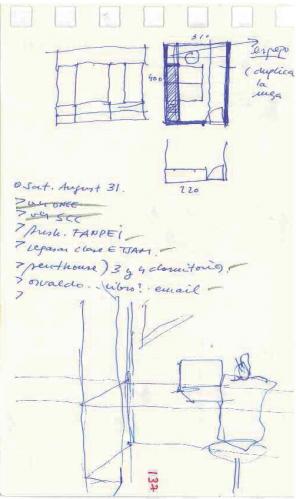 310
400
espejo
(duplica
la
mesa
220
Sat. August 31.
> ver
> ver SCC
> Push. TANPEI
> repasar clase ETSAM.
> penthouse) 3 y 4 dormitorios.
> osvaldo.. libro?. email
>
137